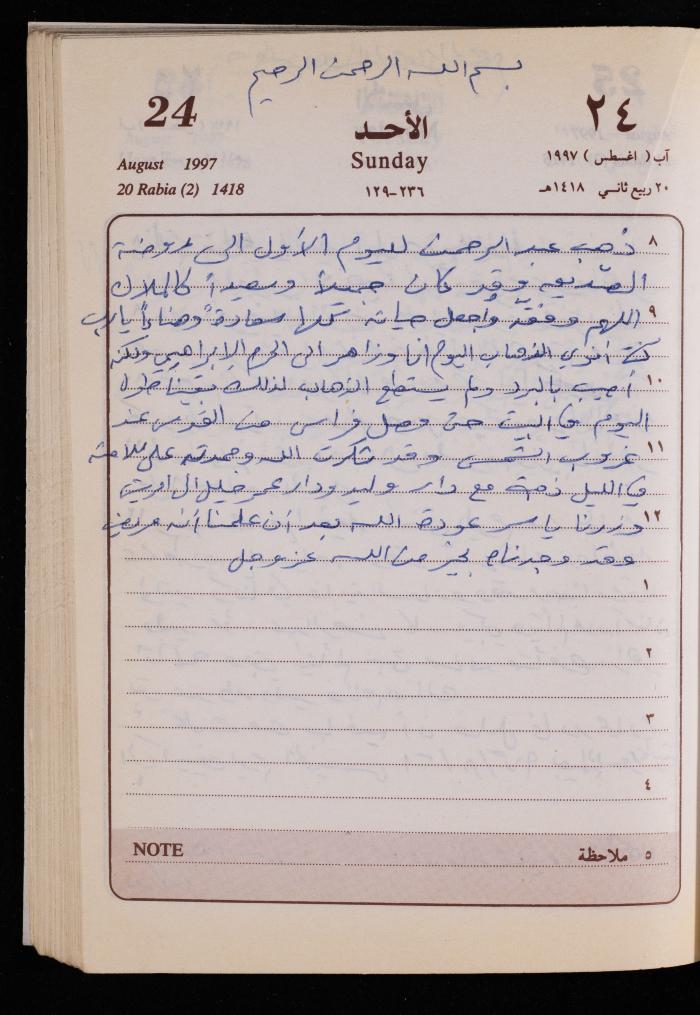 بسم الله الرحمن الرحيم
24
٢٤
الأحد
August 1997
Sunday
آب ( اغسطس ) ١٩٩٧
20 Rabia (2) 1418
٢٣٦-١٢٩
٢٠ ربيع ثاني ١٤١٨هـ
٨ ذهب عبد الرحمن لليوم الأول الى روضة
الصديق وقد كان جميلاً وسعيداً كالملاك
٩ اللهم وفقه وأجعل حياته كلها سعادة وهناءاً يا رب
كنت أنوي الذهاب اليوم أنا وزاهر الى الحرم الإبراهيمي ولكنه
١٠ أصيب بالبرد ولم يستطع الذهاب لذلك بقينا طوال
اليوم في البيت حتى وصل فراس من القدس عند
١١ غروب الشمس وقد شكرت الله وحمدته على سلامته
في الليل ذهبت مع دار وليد ودار عمر خليل ال
١٢ وزرنا ياسر عودة الله بعد أن علمنا أنه مريض
وقد وجدناه بخير من الله عز وجل
١
٢
٣
٤
NOTE
٥ ملاحظة